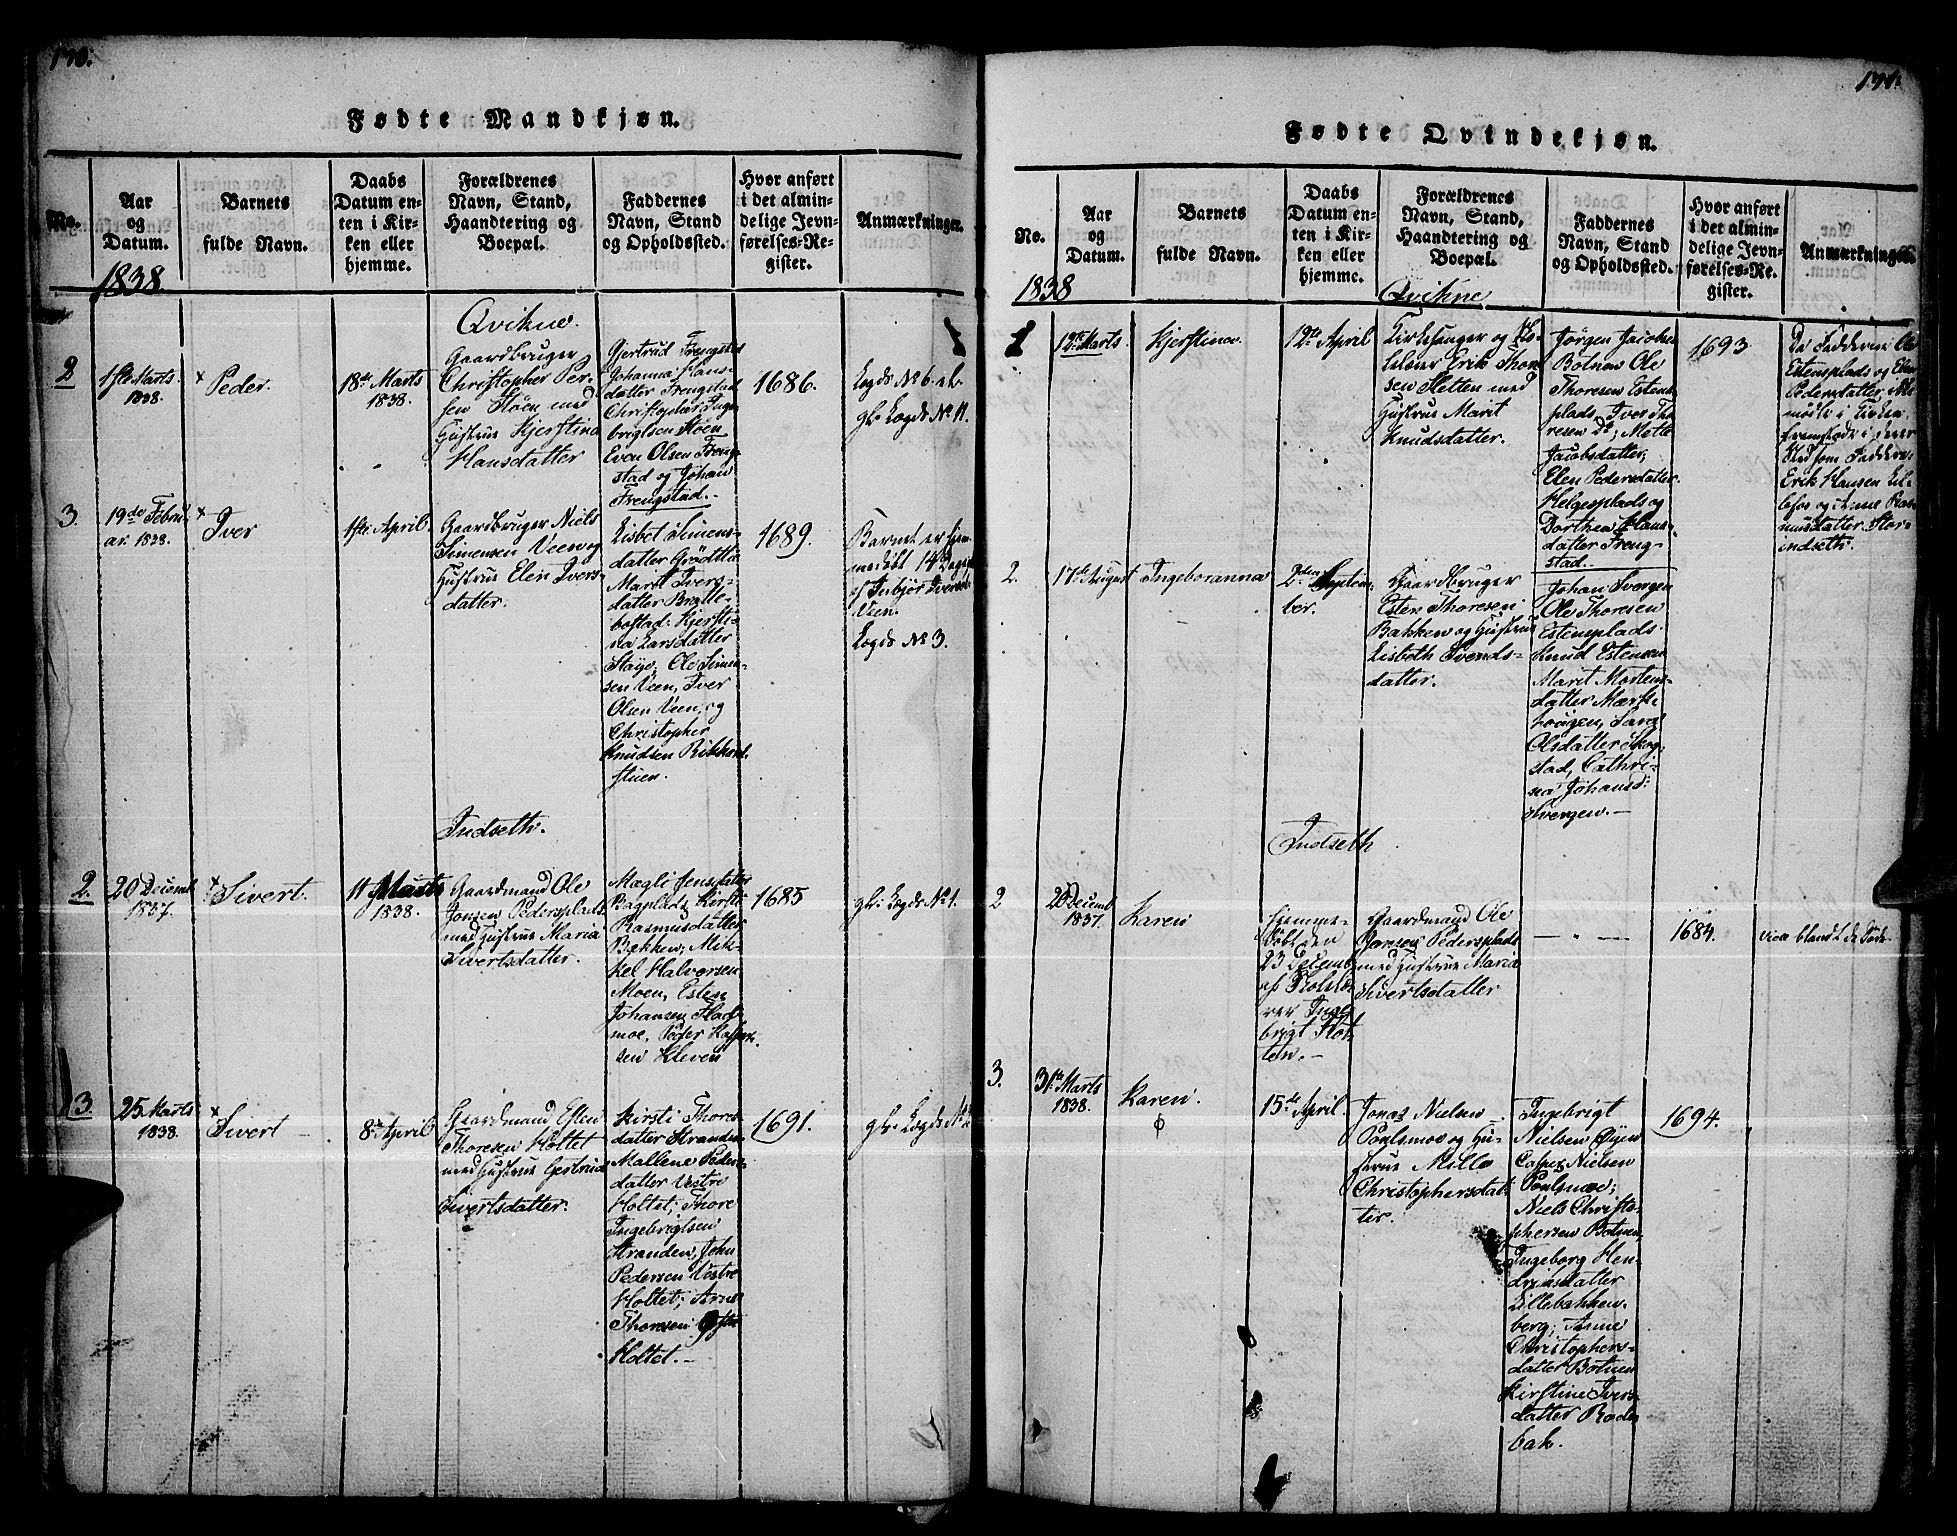 170.
Fødte Mandkjøn.
No.
Aar
og
Datum.
Barnets
fulde Navn.
Daabs
Datum en-
ten i Kir-
ken eller
hjemme.
Forældrenes
Navn, Stand,
Haandtering og
Boepæl.
Faddernes
Navn, Stand
og Opholdssted.
Hvor anført
i det almin-
delige Jevn-
førelses-Re-
gister.
Anmærkninger.
1838
Qvikne.
2
1ste Marts
1838.
Peder.
18de Marts
1838.
Gaardbruger
Christopher Per-
sen Støen med
Hustrue Kjerstina
Hansdatter
Gjertrud Frengstad
Johanna Hans-
datter Frengstad
Christopher Inge-
brigtsen Støen
Even Olsen Freng-
stad og Johan
Frengstad.
1686.
Lægds No 6.
gl. Lægds No 11.
3.
19de Febru-
ar. 1838.
Iver
1ste April.
Gaardbruger Niels
Simensen Veen og
Hustrue Elen Ivers-
datter.
Lisbet Simens-
datter Grødtlie
Marit Ivers-
datter Brætte-
bostad. Kjersti-
na Larsdatter
Ole Simen-
sen Veen, Iver
Olsen Veen, og
Christopher
Knudsen
stuen.
1689.
Barnet er hjem-
medøbt 14 Dags
af Iver
Veen.
Lægds No 3.
Indseth.
2.
20 Decemb
1837.
Sivert.
11 Marts
1838.
Gaardmand Ole
Jonsen Pedersplads
med Hustrue Maria
Sivertsdatter.
Mægli Jensdatter
Bagplads, Kirsti
Rasmusdatter
Bækken, Mik-
kel Halvorsen
Moen, Esten
Johansen Flad-
moe, Peder
sen Kleven
1685
gl. Lægds No 1.
3.
25 Marts
1838.
Sivert
8de April
Gaardmand Esten
Thoresen Holtet
med Hustrue Gertrud
Sivertsdatter.
Kirsti Thores-
datter Stranden
Mallene Peders-
datter Vestre
Holtet; Thore
Ingebrigtsen
Stranden, John
Pedersen Vestre
Holtet; Arne
Thoresen
Holtet.
1691.
gl. Lægds No
171.
Fødte Qvindekjøn.
No.
Aar
og
Datum.
Barnets
fulde Navn.
Daabs
Datum en-
ten i Kir-
ken eller
hjemme.
Forældrenes
Navn, Stand,
Haandtering og
Boepæl.
Faddernes
Navn, Stand
og Opholdssted.
Hvor anført
i det almin-
delige Jevn-
førelses-Re-
gister.
Anmærkninger.
1838
Qvikne
1
12te Marts
Kjerstina.
12te April
Kirkesanger og
Erik Thor-
sen Sletten med
Hustrue Marit
Knudsdatter.
Jørgen Jacobsen
Botnen Ole
Thoresen Estens-
plads, Iver Tho-
resen do; Mette
Jacobsdatter,
Elen Pedersdatter
Helgesplads og
Dorthea Hans-
datter Freng-
stad.
1693
Da Fadderne Ole
Estensplads og Elen
Pedersdatter, ikke
mødte i Kirken,
fremstode i deres
Sted som Faddere
Erik Hansen Lil-
lefos og Anne Ras-
musdatter Stor-
indseth.
2.
17de August
Ingeboranna
2den Septem-
ber.
Gaardbruger
Esten Thoresen
Bakken og Hustrue
Lisbeth Svends-
datter.
Johan Svergen
Ole Thoresen
Estensplads.
Knud Estensen
Marit Mortens-
datter
Olsdatter Skog-
stad, Cathri-
na Johansd:
Svergen.
Indseth
2
20 Decemb
1837.
Karen
hjemme-
døbt den
23 Decemb
af Skolelæ-
rer Inge-
brigt Slet-
ten.
Gaardmand Ole
Jonsen Pedersplads
med Hustrue Maria
Sivertsdatter
— " —
1684.
vica blandt de Døde.
3.
31te Marts
1838.
Karen.
15de April.
Jonas Nielsen
Poulsmoe og Hu-
strue Mille
Christophersdat-
ter.
Ingebrigt
Nielsen Øyen
Casper Nielsen
Poulsmoe;
Niels Christo-
phersen Botnen,
Ingeborg Hen-
driksdatter
Lillebakken-
berg; Anne
Christophers-
datter Botnen
Kirstine Ivers-
datter Rode-
bak.
1694.